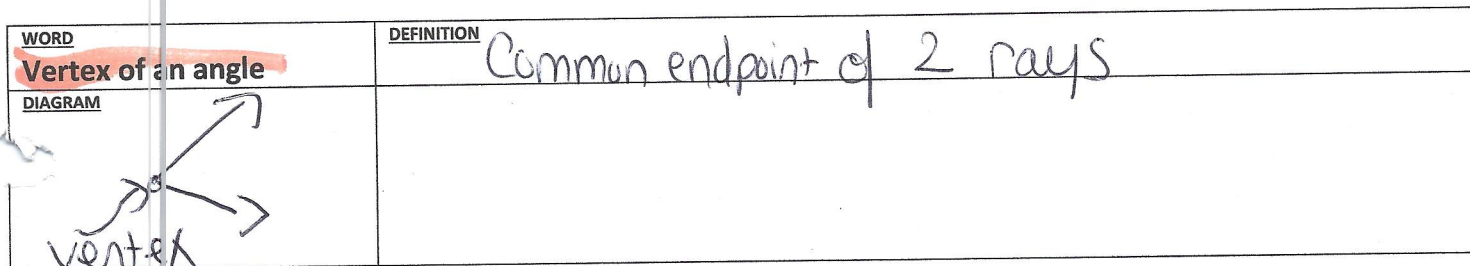 WORD
Vertex of an angle
DEFINITION Common endpoint of 2 rays
DIAGRAM
vertex